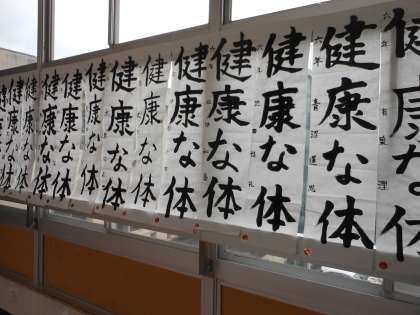 健康な体
健康な体
六年
健康な体
六年
健康な体
健康な体
健康な体
健康な体
健康な体
健康な体
健康な体
健康な体
健康な体
健康な体